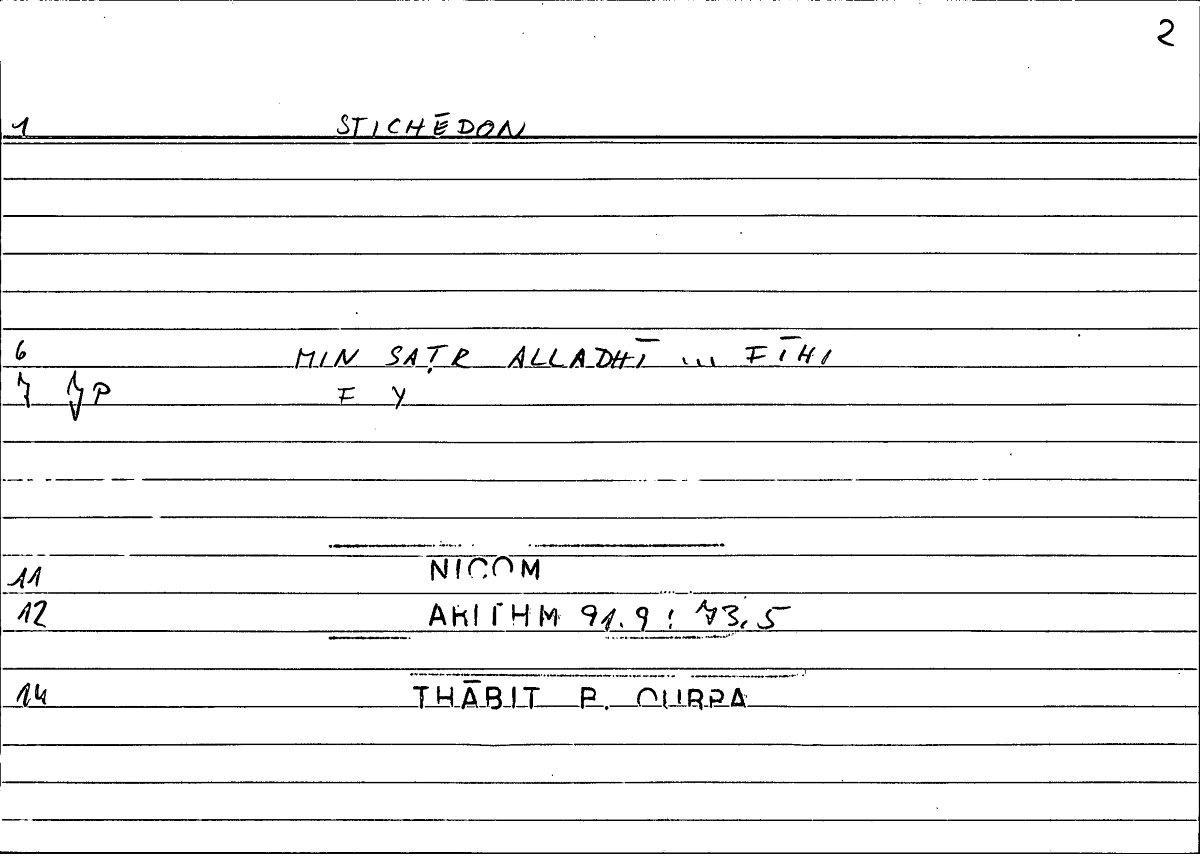 2
1 STICHĒDON
6 MIN SAṬR ALLADHĪ ... FĪHI
7 7P F Y
11 NICOM
12 ARITHM 91.9 : 73.5
14 THĀBIT B. QURRA